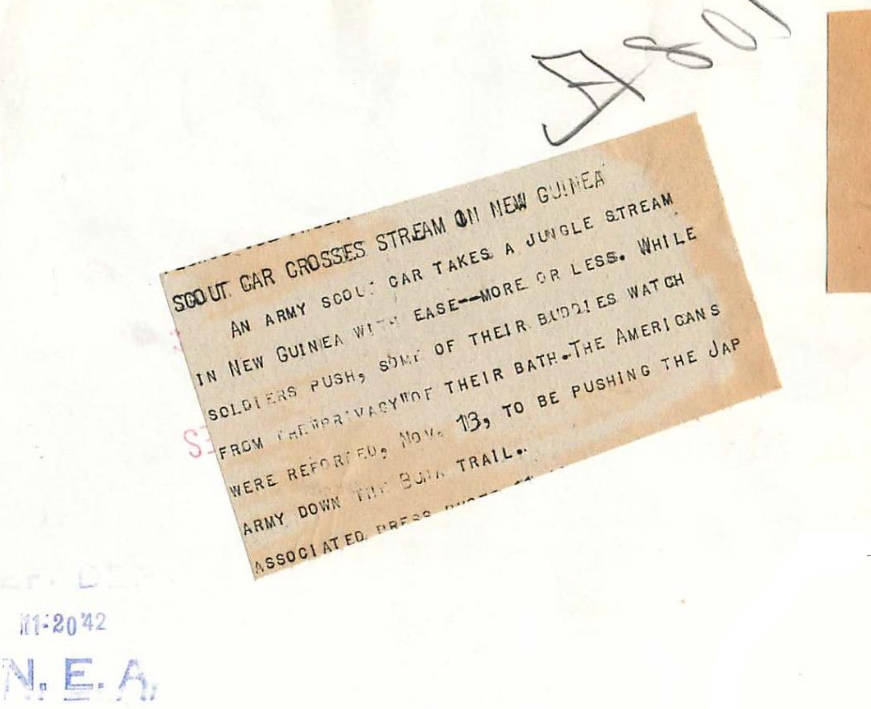 A 801
SCOUT CAR CROSSES STREAM ON NEW GUINEA
AN ARMY SCOUT CAR TAKES A JUNGLE STREAM
IN NEW GUINEA WITH EASE--MORE OR LESS. WHILE
SOLDIERS PUSH, SOME OF THEIR BUDDIES WATCH
FROM THE "PRIVACY" OF THEIR BATH. THE AMERICANS
WERE REPORTED, NOV. 13, TO BE PUSHING THE JAP
ARMY DOWN THE BUNA TRAIL.
ASSOCIATED PRESS PHOTO
11-20'42
N.E.A.